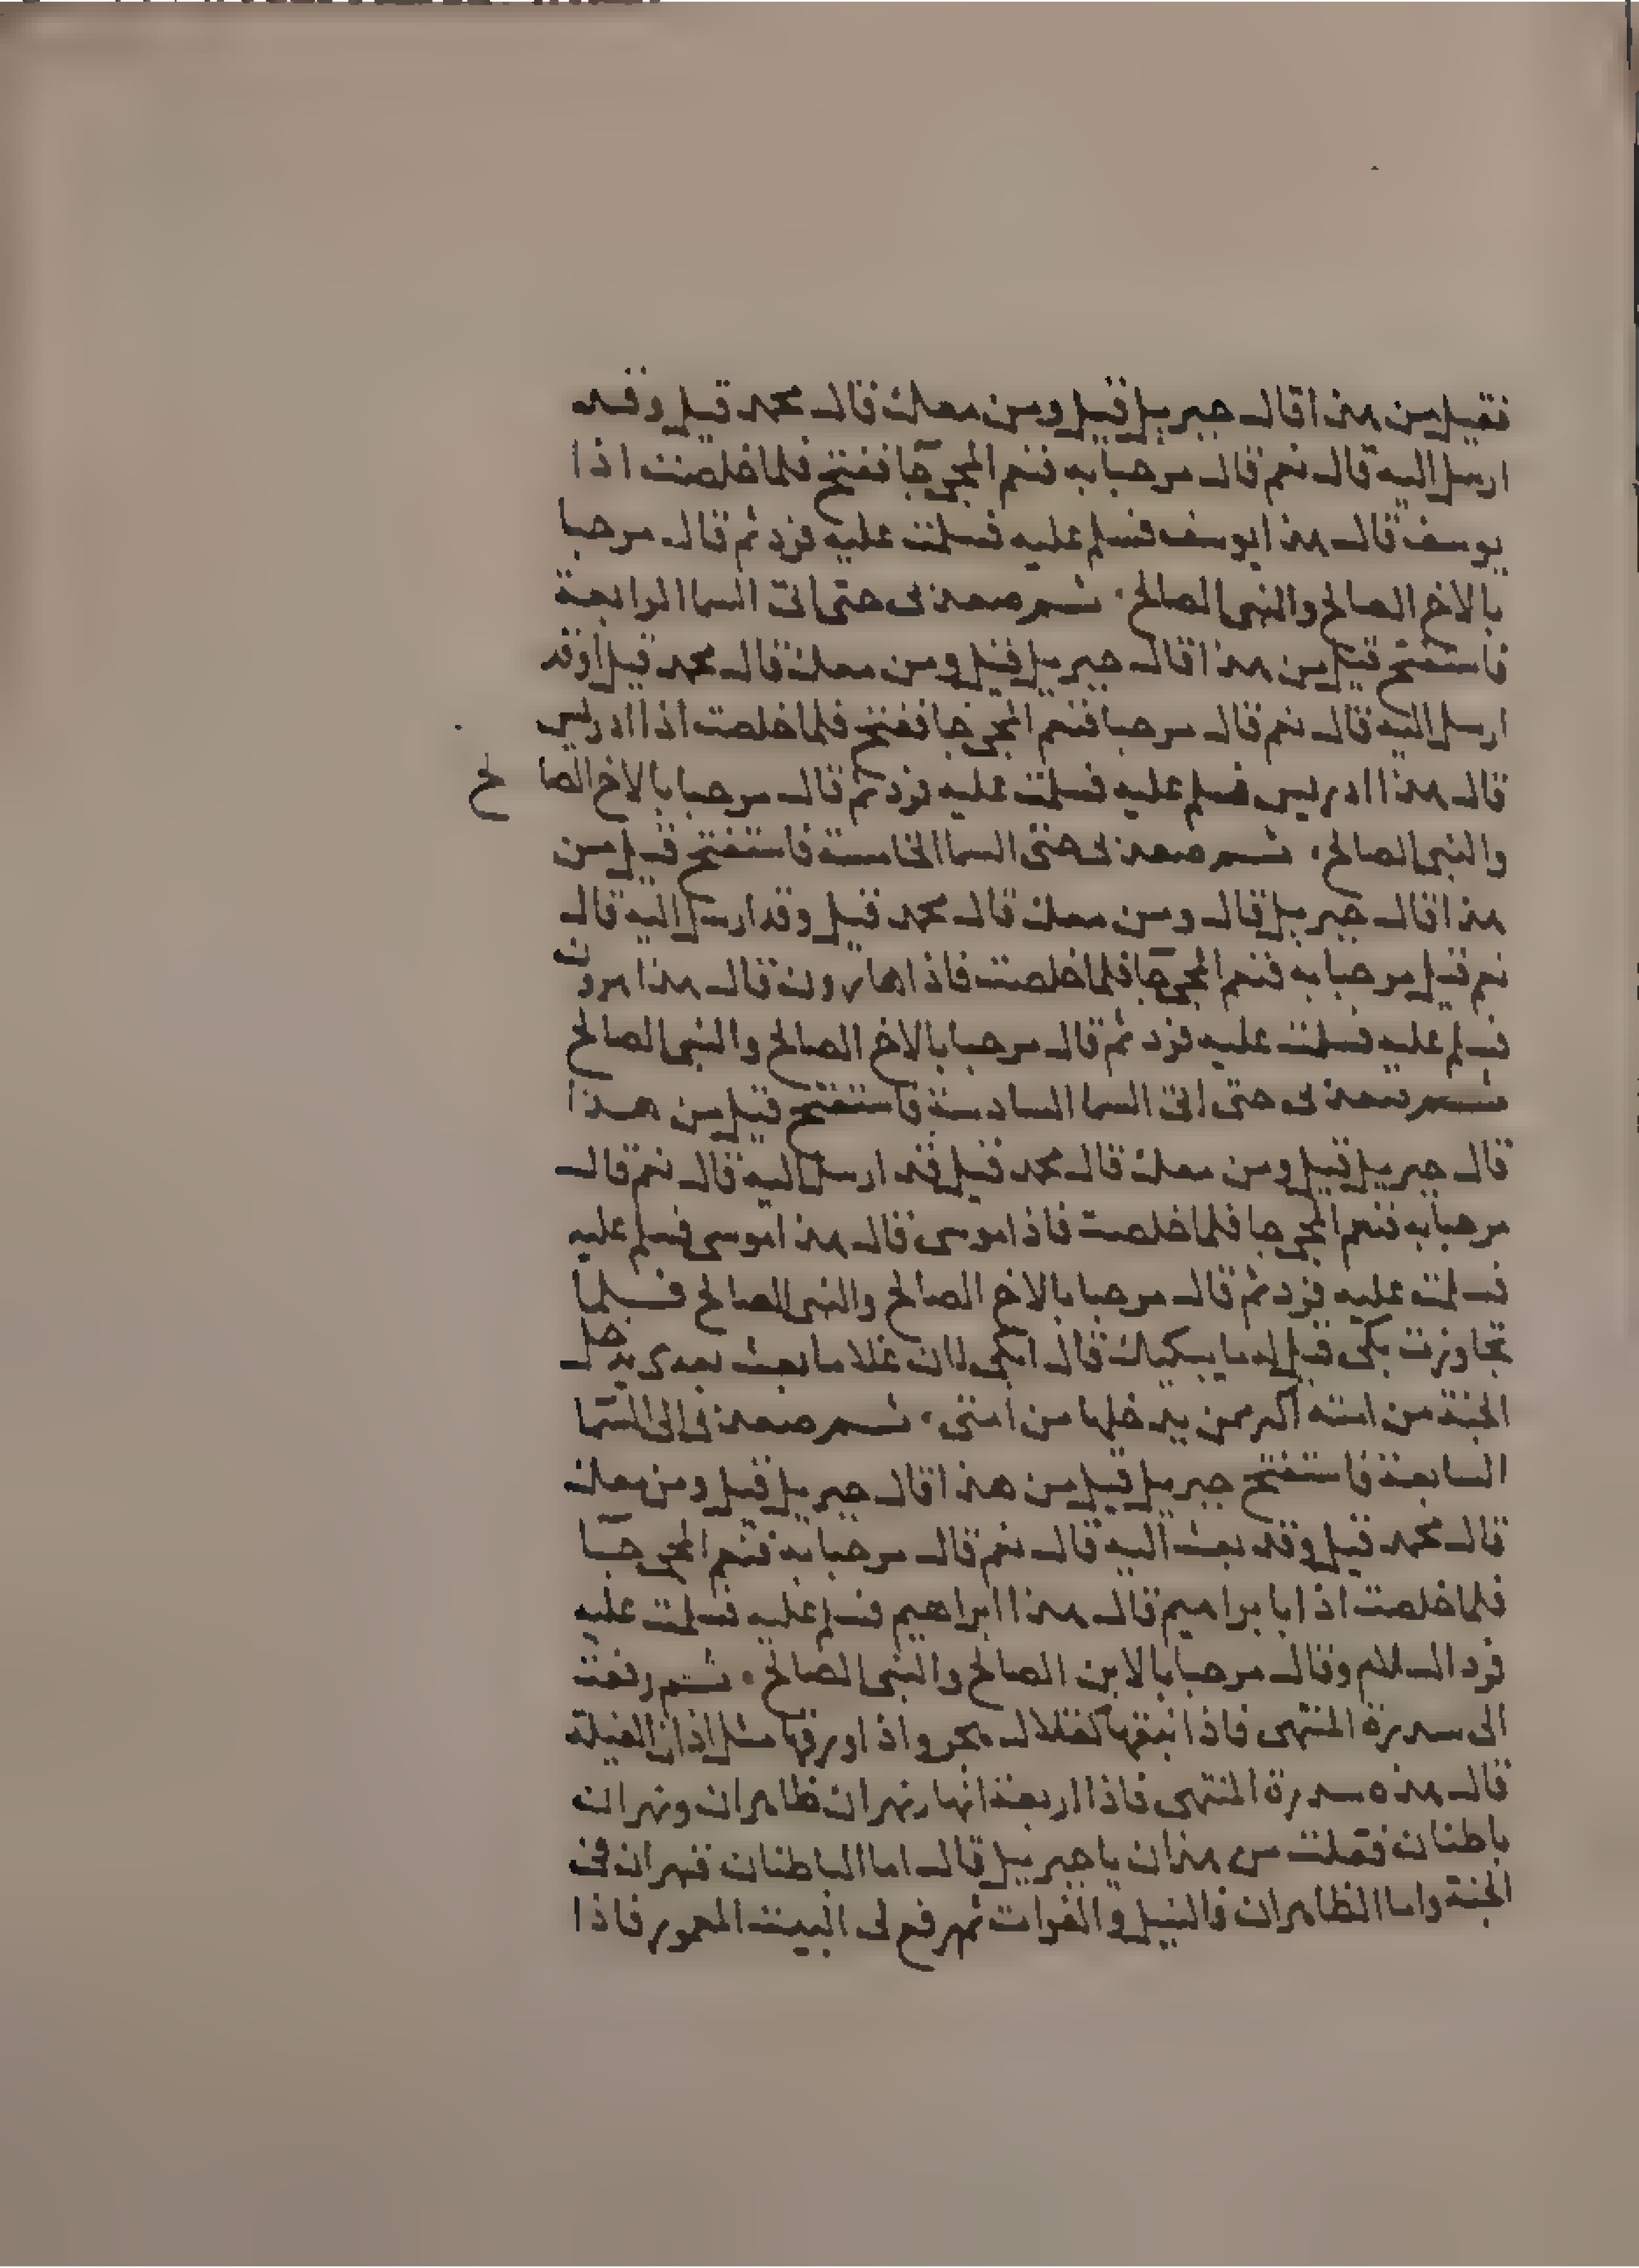 فقيل من هذا قال جبريل قيل ومن معك قال محمد قيل وقد
ارسل اليه قال نعم قال مرحبا به فنعم المجئ جا ففتح فلما خلصت اذا
يوسف قال هذا يوسف فسلم عليه فسلمت عليه فرد ثم قال مرحبا
بالاخ الصالح والنبى الصالح ثم صعد بى حتى اتى السما الرابعة
فاستفتح قيل من هذا قال جبريل قيل ومن معك قال محمد قيل اوقد
ارسل اليه قال نعم قال مرحبا فنعم المجئ جا ففتح فلما خلصت اذا ادريس
قال هذا ادريس فسلم عليه فسلمت عليه فرد ثم قال مرحبا بالاخ الصالح
والنبى الصالح ثم صعد بى حتى السما الخامسة فاستفتح قيل من
هذا قال جبريل قال ومن معك قال محمد قيل وقد ارسل اليه قال
نعم قيل مرحبا به فنعم المجئ جا فلما خلصت فاذا هارون قال هذا هرون
فسلم عليه فسلمت عليه فرد ثم قال مرحبا بالاخ الصالح والنبى الصالح
ثم صعد بى حتى اتى السما السادسة فاستفتح قيل من هذا
قال جبريل قيل ومن معك قال محمد قيل قد ارسل اليه قال نعم قال
مرحبا به فنعم المجئ جا فلما خلصت فاذا موسى قال هذا موسى فسلم عليه
فسلمت عليه فرد ثم قال مرحبا بالاخ الصالح والنبى الصالح فلما
تجاوزت بكى قيل له ما يبكيك قال ابكى لان غلاما بعث بعدى يدخل
الجنة من امته اكثر ممن يدخلها من امتى ثم صعد بى الى السما
السابعة فاستفتح جبريل قيل من هذا قال جبريل قيل ومن معك
قال محمد قيل وقد بعث اليه قال نعم قال مرحبا به فنعم المجئ جا
فلما خلصت اذا بابراهيم قال هذا ابراهيم فسلم عليه فسلمت عليه
فرد السلام وقال مرحبا بالابن الصالح والنبى الصالح ثم رفعت
الى سدرة المنتهى فاذا نبقها كقلال هجر واذا ورقها مثل اذان الفيلة
قال هذه سدرة المنتهى فاذا اربعة انهار نهران ظاهران ونهران
باطنان فقلت من هذان يا جبريل قال اما الباطنان فنهران فى
الجنة واما الظاهران فالنيل والفرات ثم رفع لى البيت المعمور فاذا